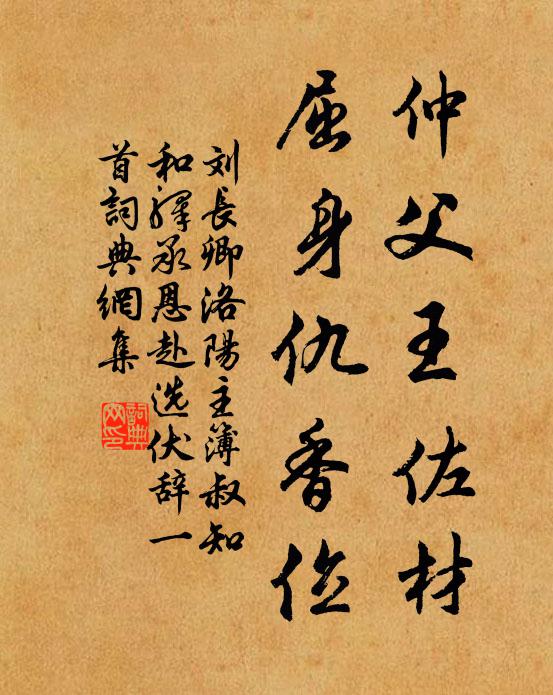 仲父王佐材
屈身仇香位
刘長卿洛陽主簿叔知
和驛承恩赴选伏辞一
首詞典網集
詞典网印